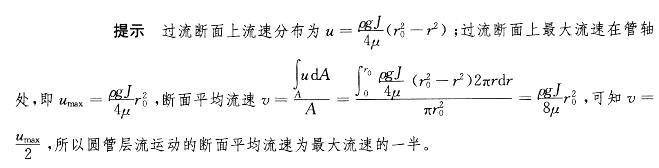 提示 过流断面上流速分布为 u = \frac{ρgJ}{4μ}(r_0^2 − r^2);过流断面上最大流速在管轴
处,即 u_{max} = \frac{ρgJ}{4μ}r_0^2,断面平均流速 v = \frac{\int_A u dA}{A} = \frac{\int_0^{r_0} \frac{ρgJ}{4μ}(r_0^2 − r^2)2πrdr}{πr_0^2} = \frac{ρgJ}{8μ}r_0^2,可知 v =
\frac{u_{max}}{2},所以圆管层流运动的断面平均流速为最大流速的一半。